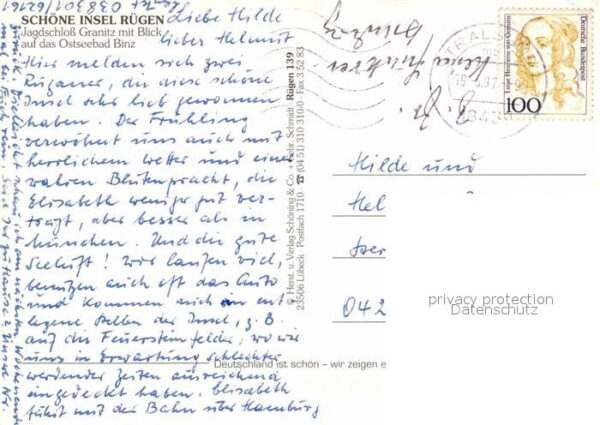 SCHÖNE INSEL RÜGEN
Jagdschloß Granitz mit Blick
auf das Ostseebad Binz
Liebe Hilde
lieber Helmut
Hier melden sich zwei
Rüganer, die diese schöne
Insel sehr lieb gewonnen
haben. Der Frühling
verwöhnt uns auch mit
herrlichem Wetter und einer
wahren Blütenpracht, die
Elisabeth weniger gut ver-
trägt, aber besser als in
München. Und die gute
Seeluft! Wir laufen viel,
benutzen auch oft das Auto
und kommen auch in ent
legene Stellen der Insel, z.B.
auf die Feuersteinfelder, wo wir
uns in Erwartung schlechter
werdender Zeiten ausreichend
eingedeckt haben. Elisabeth
fährt mit der Bahn über Hamburg
zurück. Vielleicht schau ich am nächsten Wochenende
mal bei Euch rein. Seid Ihr zu Hause? Unsere Nr.
038301/
© Herst. u. Verlag Schöning & Co. + Gebr. Schmidt
23506 Lübeck · Postfach 1710 · ☎ (04 51) 310 310-0 · Fax 3 52 83
Rügen 139
Deutschland ist schön – wir zeigen e
STRALSUND
100
Deutsche Bundespost
Luise Henriette von Oranien
Hilde und
Hel
042
privacy protection
Datenschutz